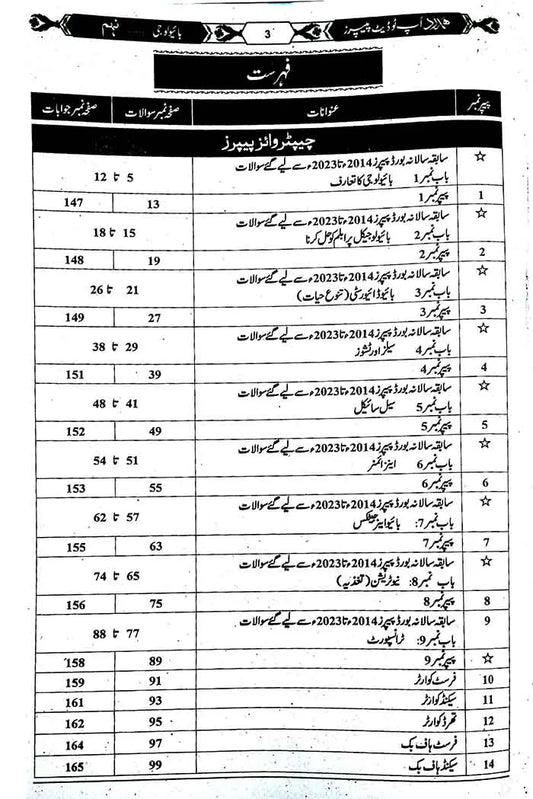 ہمدرد اَپ ٹو ڈیٹ پیپرز 3 بائیولوجی نہم
فہرست
پیپر نمبر عنوانات صفحہ نمبر سوالات صفحہ نمبر جوابات
چیپٹر وائز پیپرز
☆ سابقہ سالانہ بورڈ پیپرز 2014ء تا 2023ء سے لیے گئے سوالات
باب نمبر 1 بائیولوجی کا تعارف 5 تا 12
1 پیپر نمبر 1 13 147
☆ سابقہ سالانہ بورڈ پیپرز 2014ء تا 2023ء سے لیے گئے سوالات
باب نمبر 2 بائیولوجیکل پرابلم کو حل کرنا 15 تا 18
2 پیپر نمبر 2 19 148
☆ سابقہ سالانہ بورڈ پیپرز 2014ء تا 2023ء سے لیے گئے سوالات
باب نمبر 3 بائیوڈائیورسٹی (تنوع حیات) 21 تا 26
3 پیپر نمبر 3 27 149
☆ سابقہ سالانہ بورڈ پیپرز 2014ء تا 2023ء سے لیے گئے سوالات
باب نمبر 4 سیلز اور ٹشوز 29 تا 38
4 پیپر نمبر 4 39 151
☆ سابقہ سالانہ بورڈ پیپرز 2014ء تا 2023ء سے لیے گئے سوالات
باب نمبر 5 سیل سائیکل 41 تا 48
5 پیپر نمبر 5 49 152
☆ سابقہ سالانہ بورڈ پیپرز 2014ء تا 2023ء سے لیے گئے سوالات
باب نمبر 6 اینزائمنر 51 تا 54
6 پیپر نمبر 6 55 153
☆ سابقہ سالانہ بورڈ پیپرز 2014ء تا 2023ء سے لیے گئے سوالات
باب نمبر 7: بائیو اینرجیٹکس 57 تا 62
7 پیپر نمبر 7 63 155
☆ سابقہ سالانہ بورڈ پیپرز 2014ء تا 2023ء سے لیے گئے سوالات
باب نمبر 8: نیوٹریشن (تغذیہ) 65 تا 74
8 پیپر نمبر 8 75 156
9 سابقہ سالانہ بورڈ پیپرز 2014ء تا 2023ء سے لیے گئے سوالات
باب نمبر 9: ٹرانسپورٹ 77 تا 88
☆ پیپر نمبر 9 89 158
10 فرسٹ کوارٹر 91 159
11 سیکنڈ کوارٹر 93 161
12 تھرڈ کوارٹر 95 162
13 فرسٹ ہاف بک 97 164
14 سیکنڈ ہاف بک 99 165